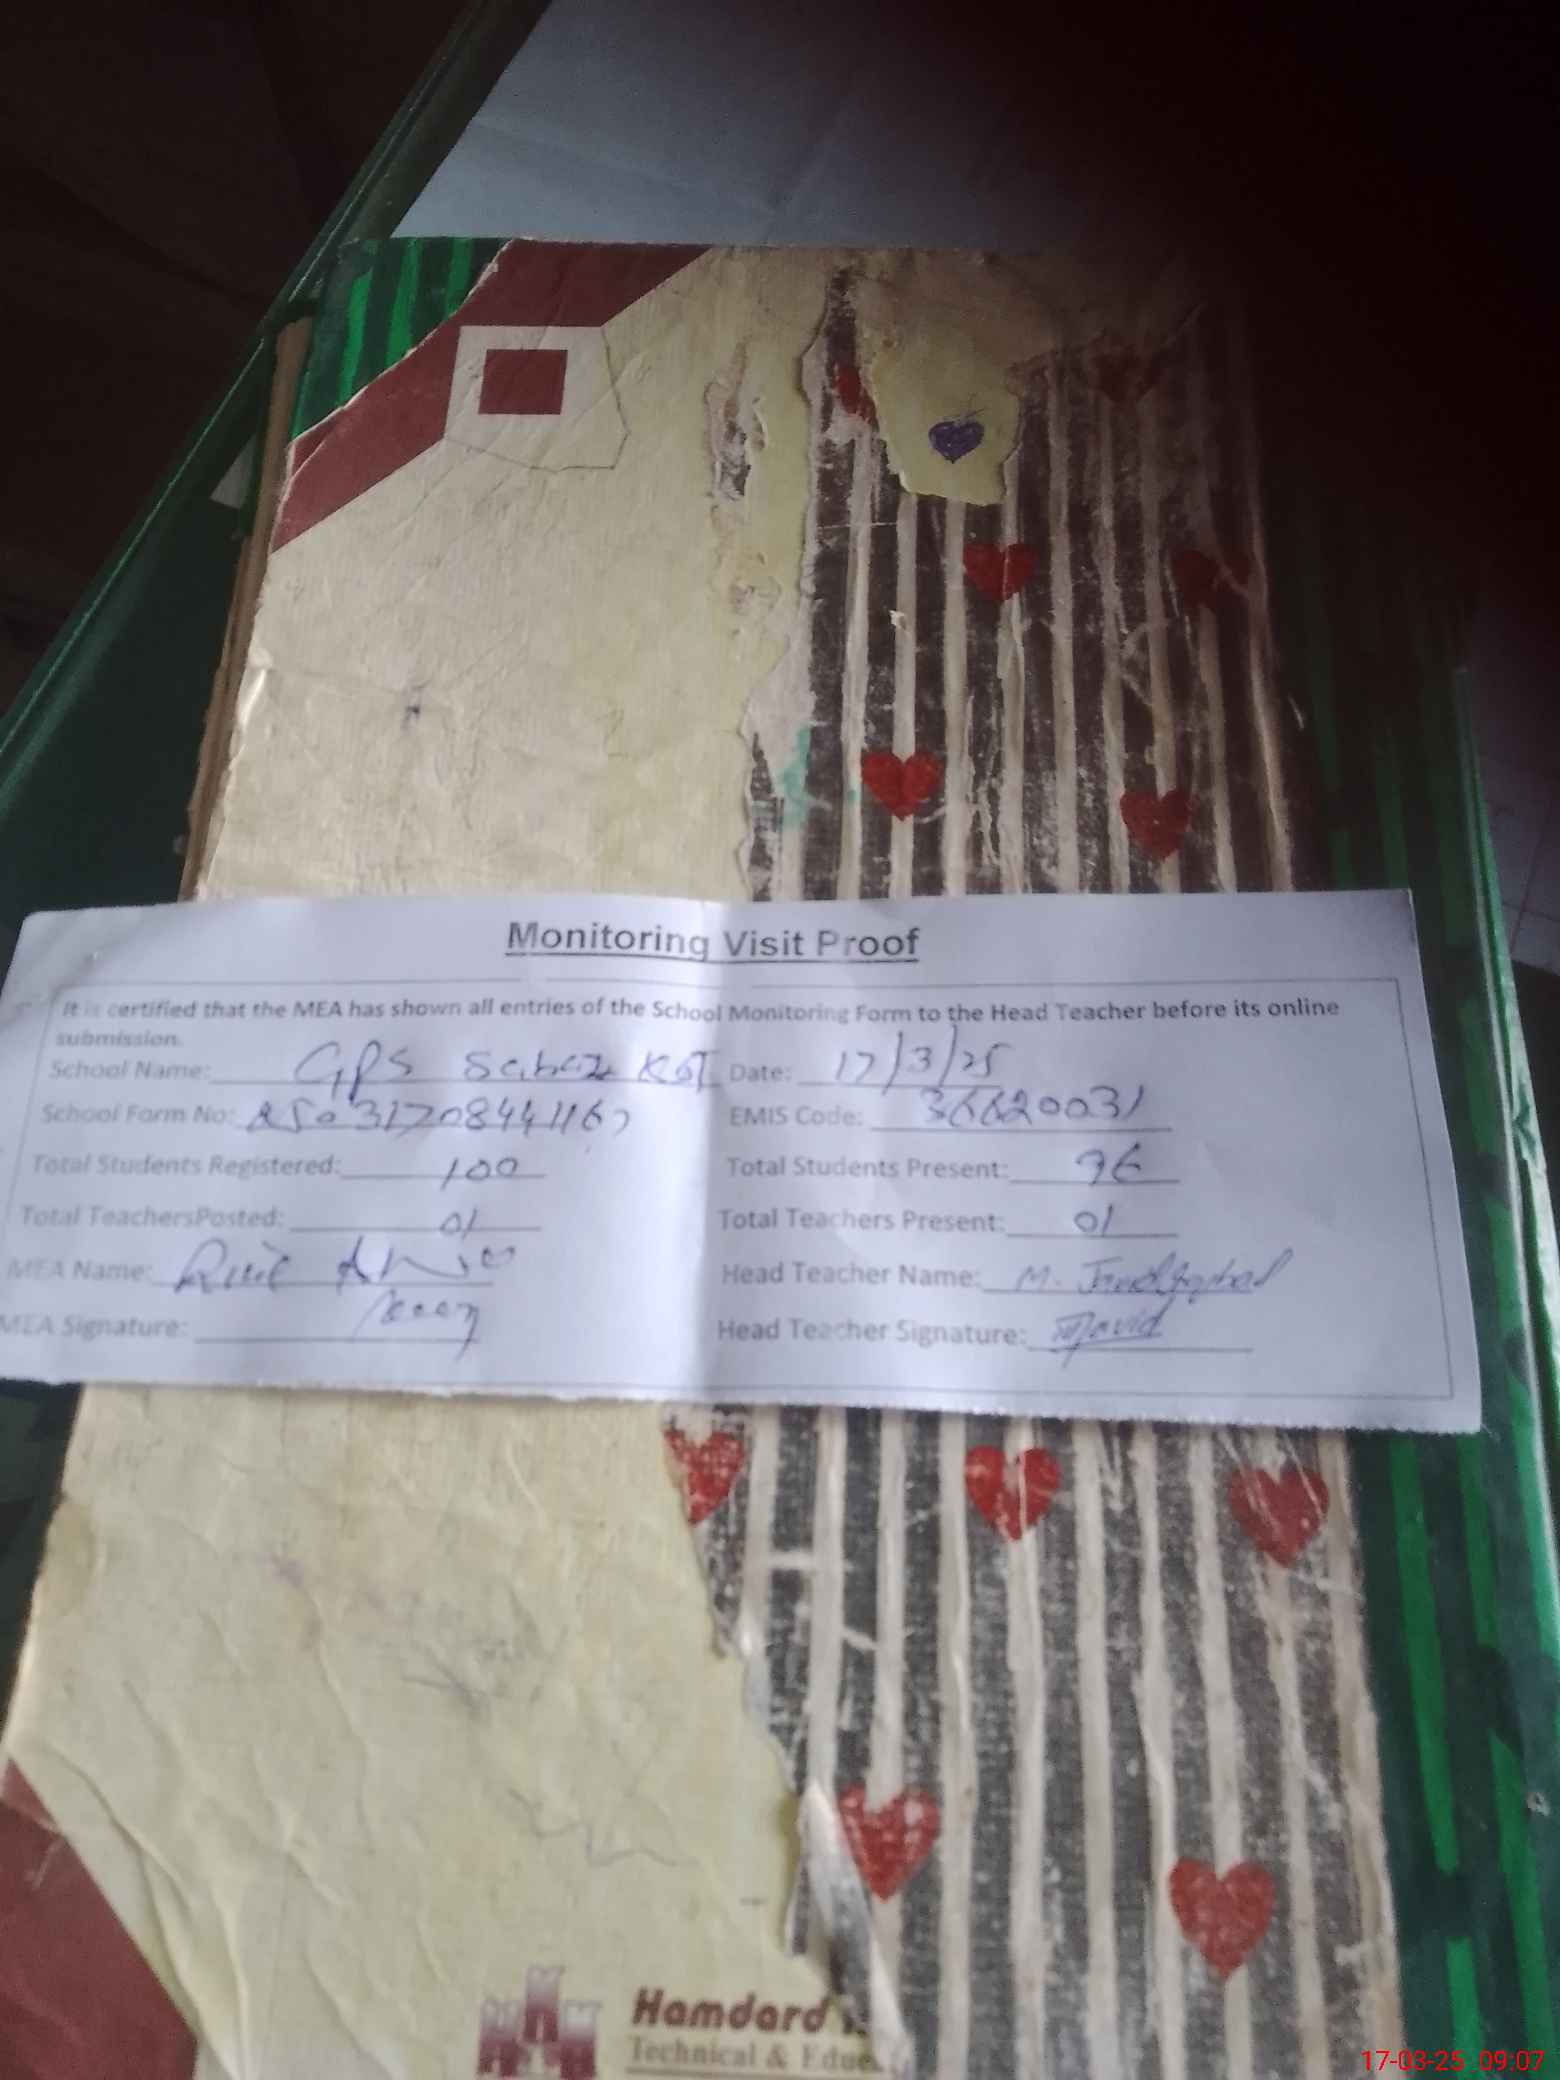 Monitoring Visit Proof
It is certified that the MEA has shown all entries of the School Monitoring Form to the Head Teacher before its online
submission.
School Name: GPS Kot Date: 17/3/25
School Form No: EMIS Code: 36620031
Total Students Registered: 100 Total Students Present: 96
Total TeachersPosted: 01 Total Teachers Present: 01
MEA Name: Head Teacher Name: M.
MEA Signature: Head Teacher Signature: Javid
Hamdard
Technical &
17-03-25 09:07